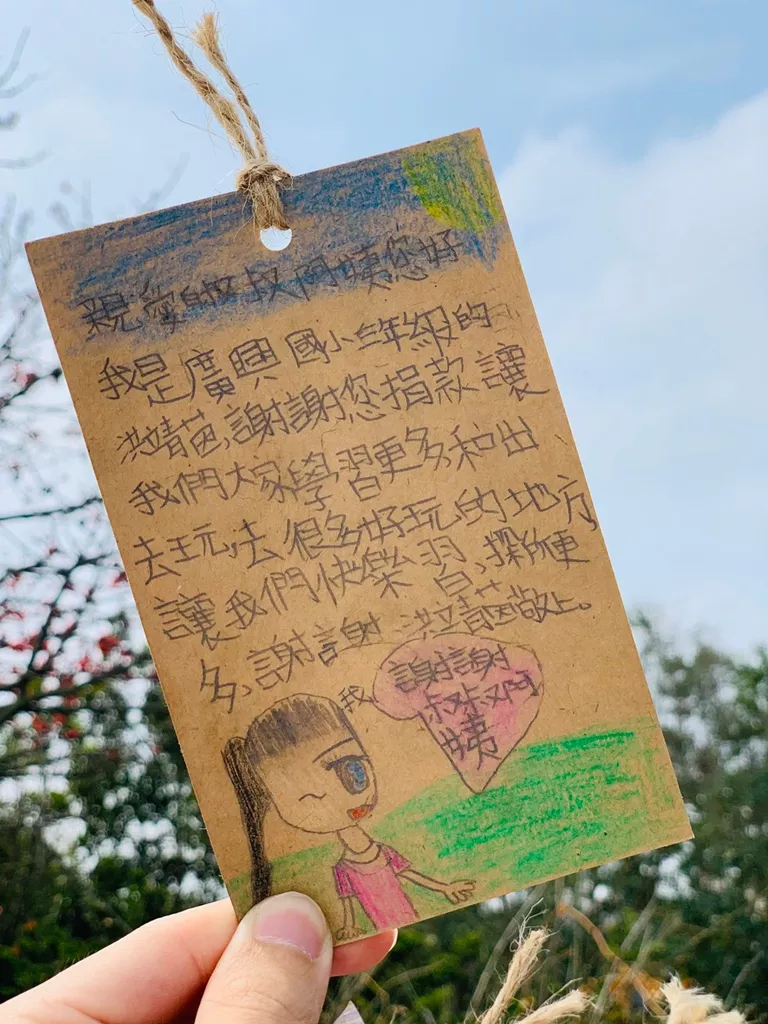 親愛的叔叔阿姨您好
我是廣興國小三年級的
洪靖茵,謝謝您捐款讓
我們大家學習更多和出
去玩,去很多好玩的地方
讓我們快樂習,探所更
多,謝謝 洪靖茵敬上。
我
謝謝
叔叔阿
姨